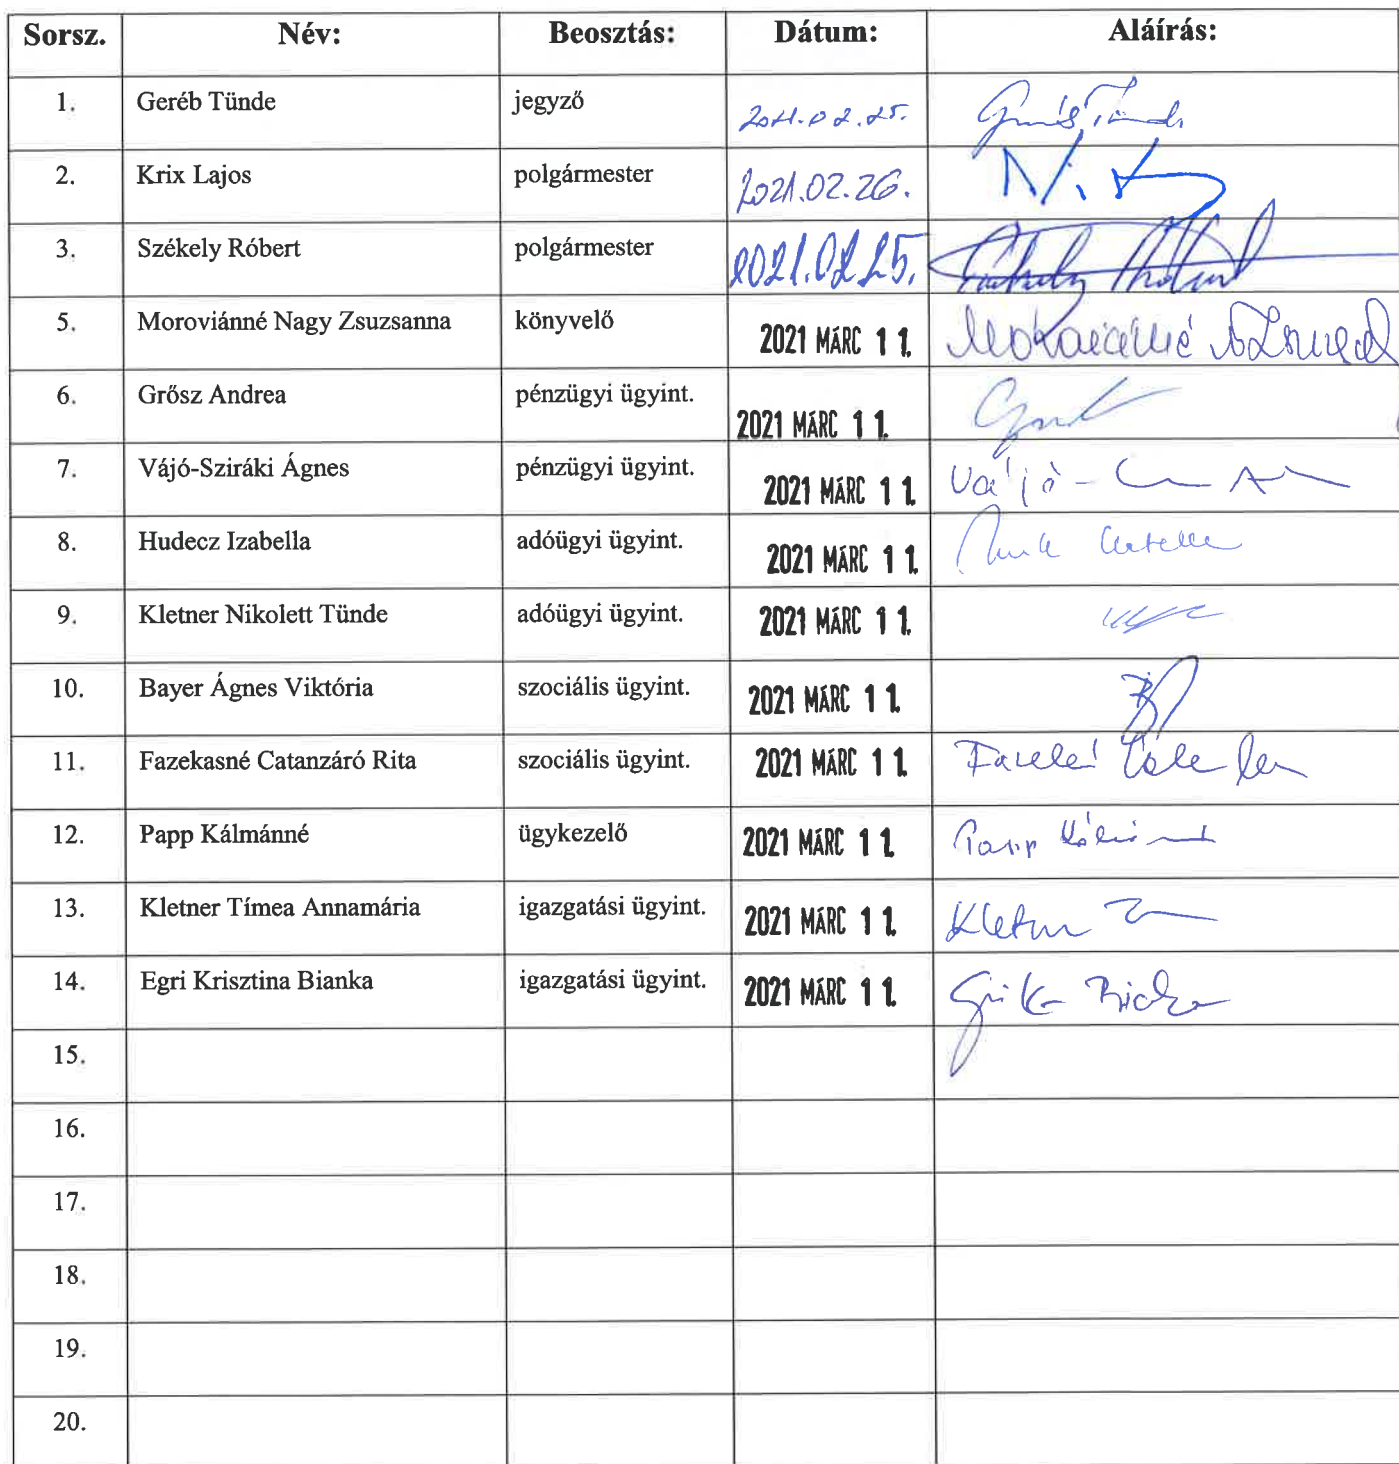 Sorsz. Név: Beosztás: Dátum: Aláírás:
1. Geréb Tünde jegyző 2021.02.25.
2. Krix Lajos polgármester 2021.02.26.
3. Székely Róbert polgármester 2021.02.25.
5. Moroviánné Nagy Zsuzsanna könyvelő 2021 MÁRC 11.
6. Grősz Andrea pénzügyi ügyint. 2021 MÁRC 11.
7. Vájó-Sziráki Ágnes pénzügyi ügyint. 2021 MÁRC 11. Vájó-
8. Hudecz Izabella adóügyi ügyint. 2021 MÁRC 11.
9. Kletner Nikolett Tünde adóügyi ügyint. 2021 MÁRC 11.
10. Bayer Ágnes Viktória szociális ügyint. 2021 MÁRC 11.
11. Fazekasné Catanzáró Rita szociális ügyint. 2021 MÁRC 11.
12. Papp Kálmánné ügykezelő 2021 MÁRC 11. Papp
13. Kletner Tímea Annamária igazgatási ügyint. 2021 MÁRC 11.
14. Egri Krisztina Bianka igazgatási ügyint. 2021 MÁRC 11.
15.
16.
17.
18.
19.
20.